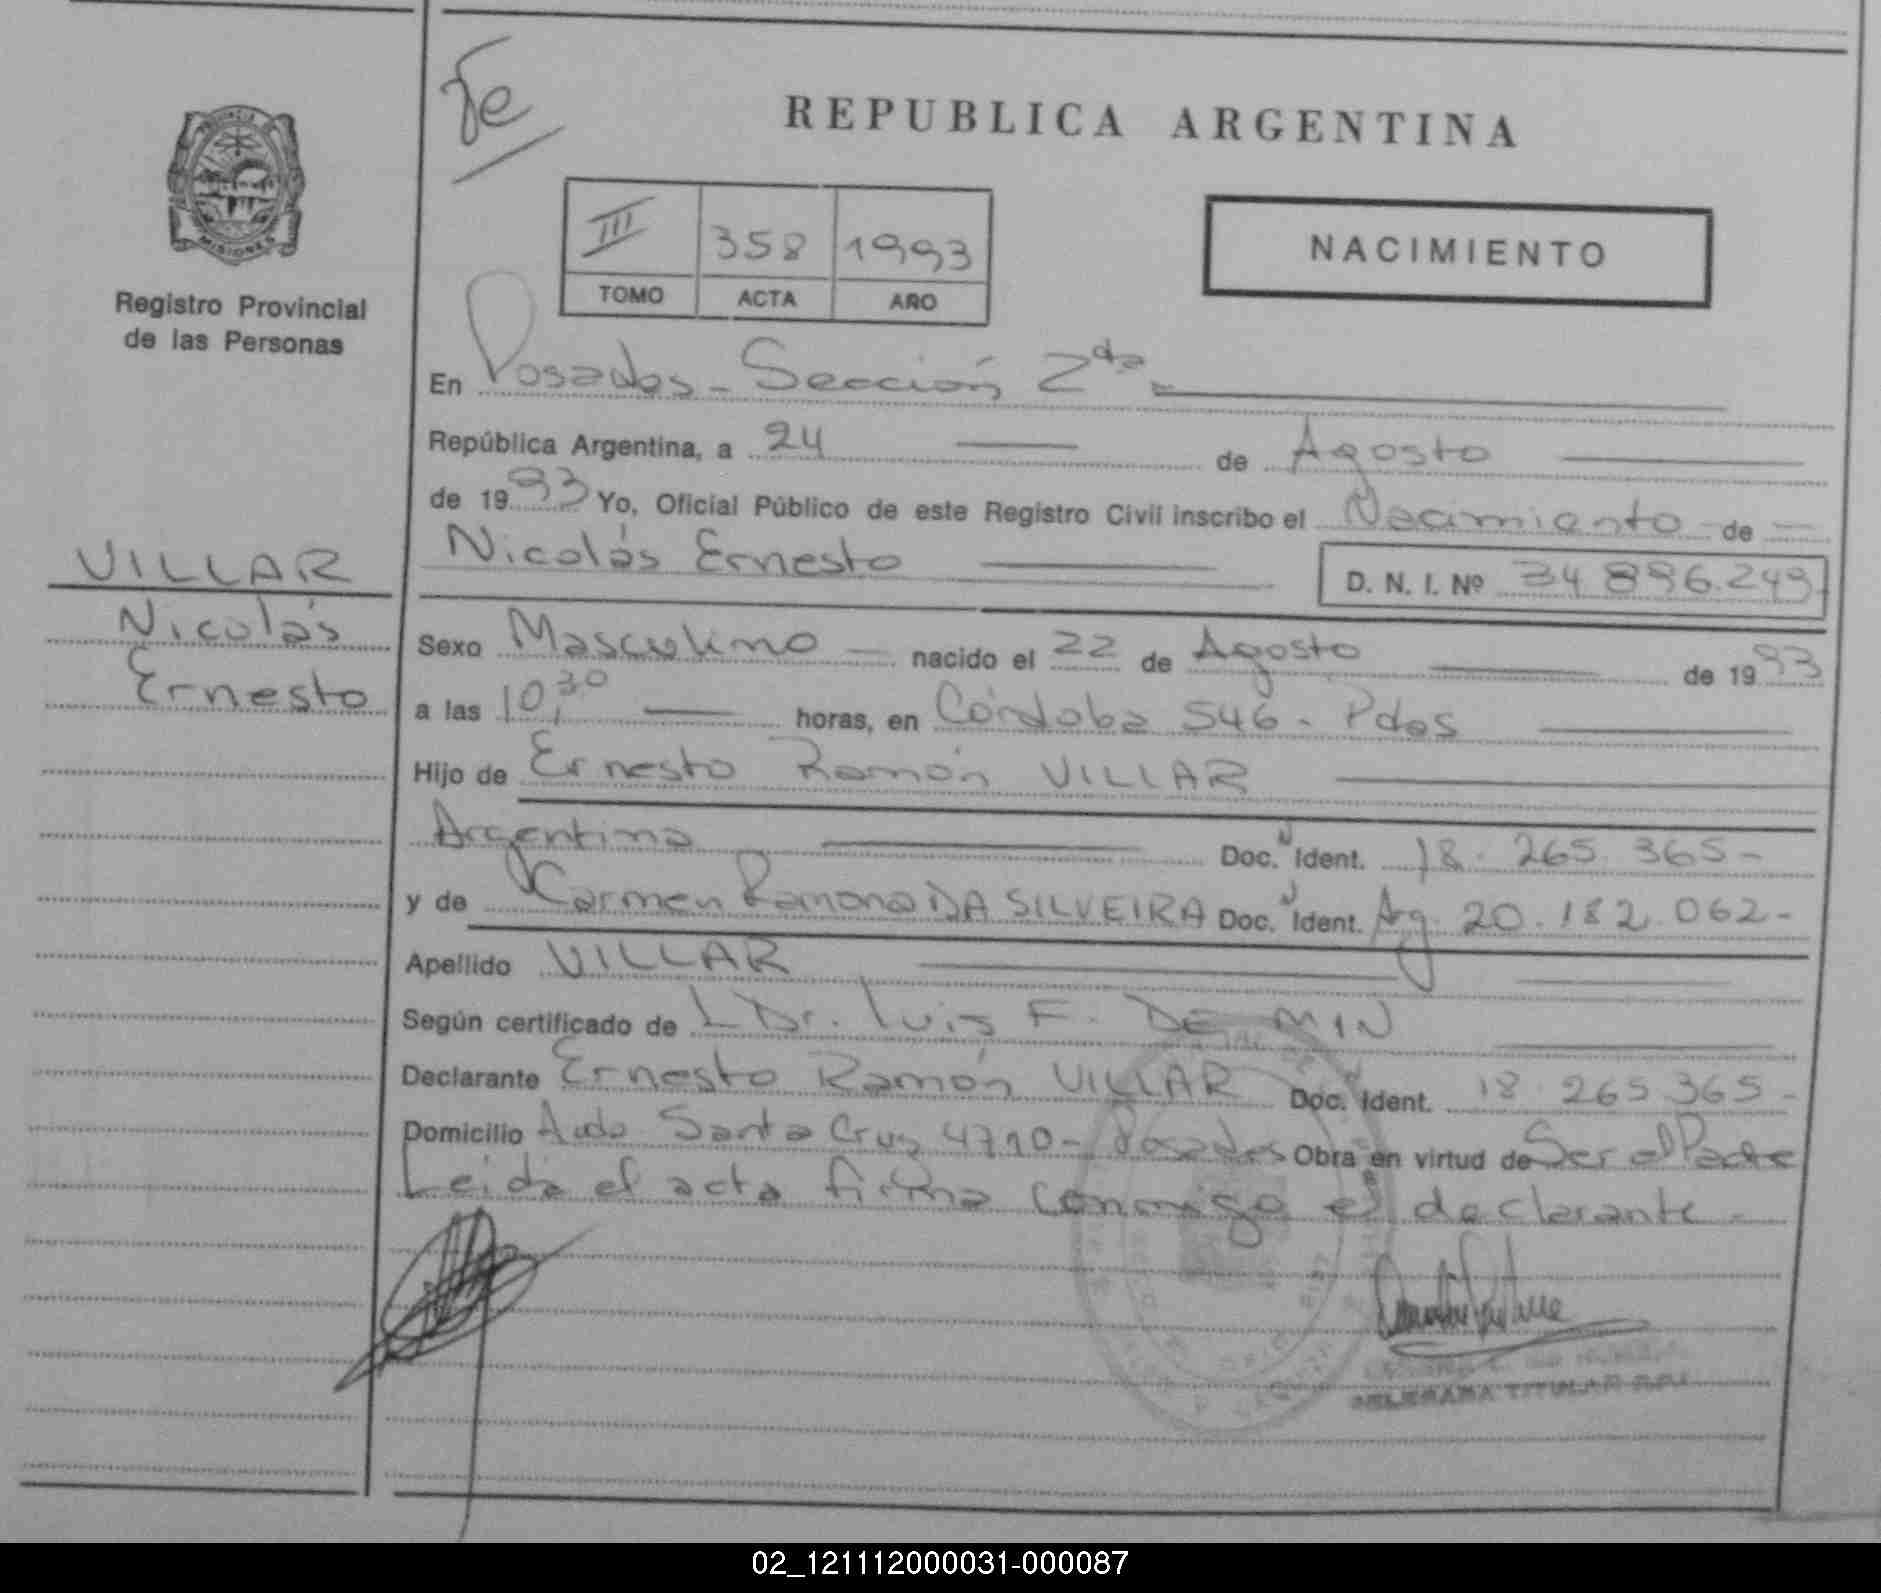 Je
REPUBLICA ARGENTINA
PROVINCIA DE
MISIONES
Registro Provincial
de las Personas
III 358 1993
TOMO ACTA AÑO
NACIMIENTO
En Posadas - Sección 2da
República Argentina, a 24 de Agosto
de 1993 Yo, Oficial Público de este Registro Civil inscribo el Nacimiento de
VILLAR
Nicolás
Ernesto
Nicolás Ernesto D. N. I. Nº 34.896.249
Sexo Masculino nacido el 22 de Agosto de 1993
a las 10,30 horas, en Córdoba 546 - Pdas
Hijo de Ernesto Ramón VILLAR
Argentina Doc. Ident. 18.265.365-
y de Carmen Ramona DA SILVEIRA Doc. Ident. Arg. 20.182.062-
Apellido VILLAR
Según certificado de Dr. Luis F. DE MIN
Declarante Ernesto Ramón VILLAR Doc. Ident. 18.265.365-
Domicilio Avda Santa Cruz 4710- Posadas Obra en virtud de Ser el Padre
Leida el acta firma conmigo el declarante.-
DELEGADA TITULAR
02_121112000031-000087